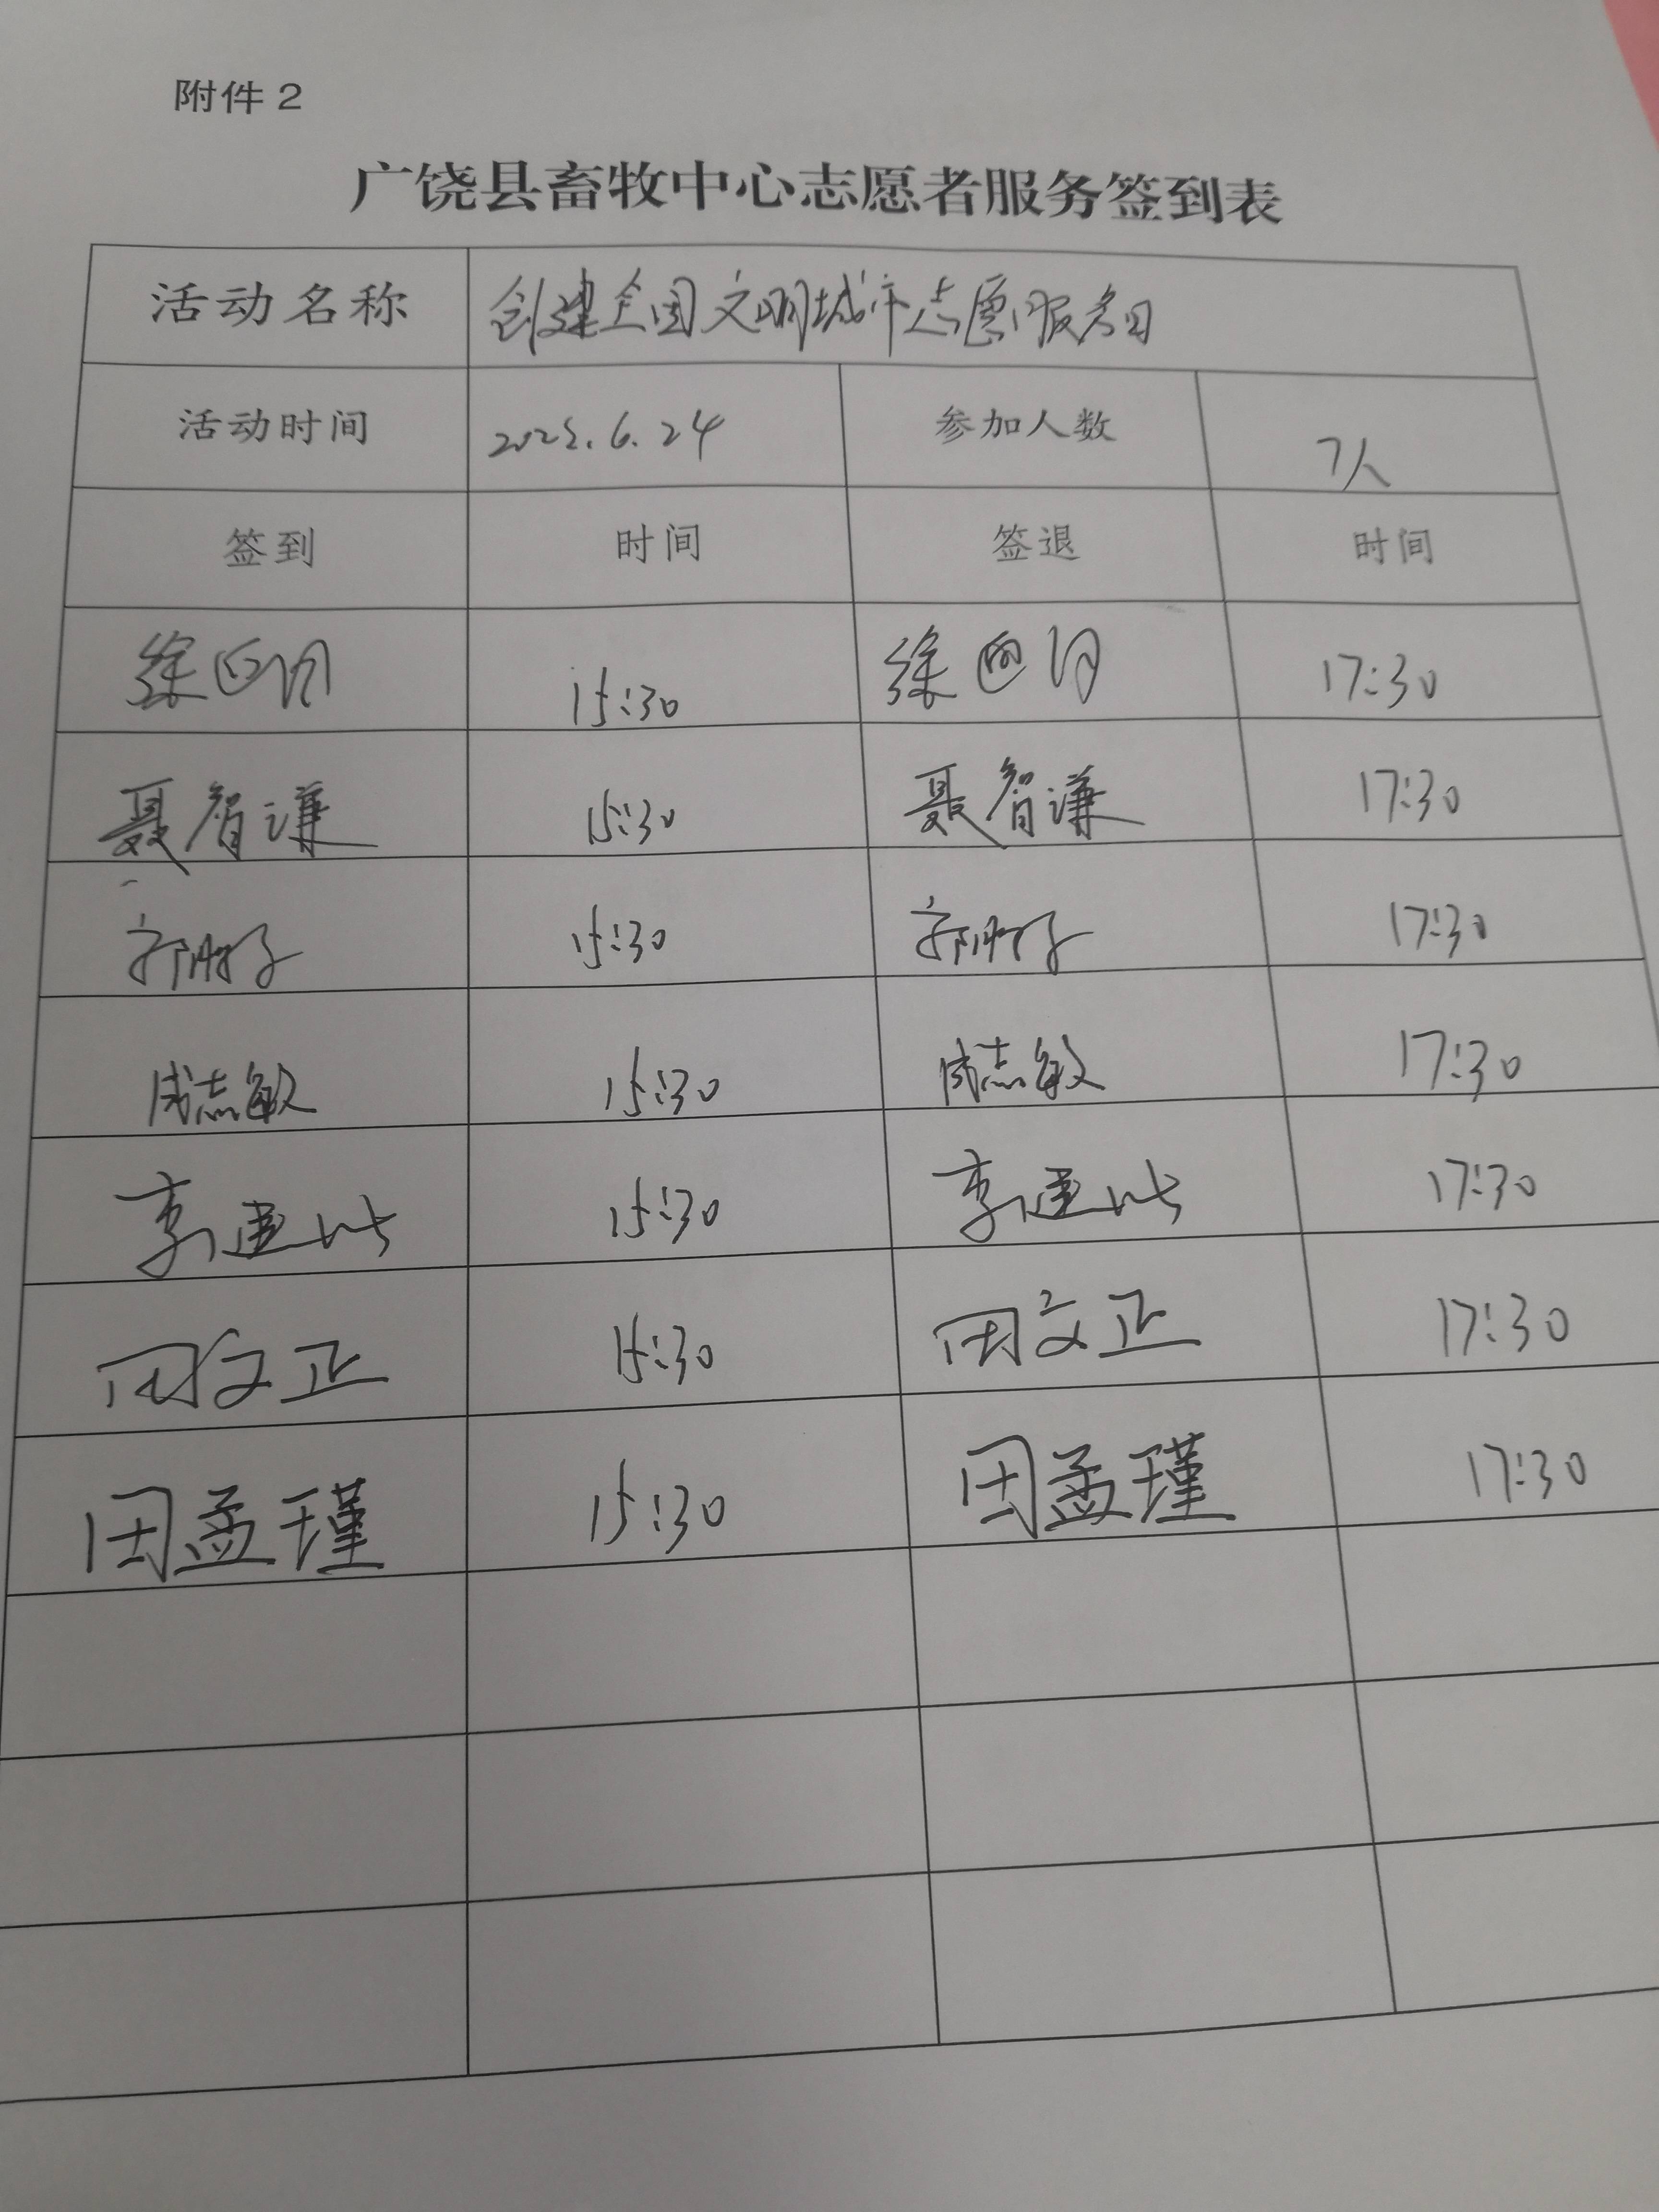 附件2
广饶县畜牧中心志愿者服务签到表
活动名称 创建全国文明城市志愿服务日
活动时间 2022.6.24 参加人数 7人
签到 时间 签退 时间
徐 15:30 徐 17:30
聂智谦 15:30 聂智谦 17:30
15:30 17:30
成志敏 15:30 成志敏 17:30
李建 15:30 李建 17:30
田文正 15:30 田文正 17:30
田孟瑾 15:30 田孟瑾 17:30